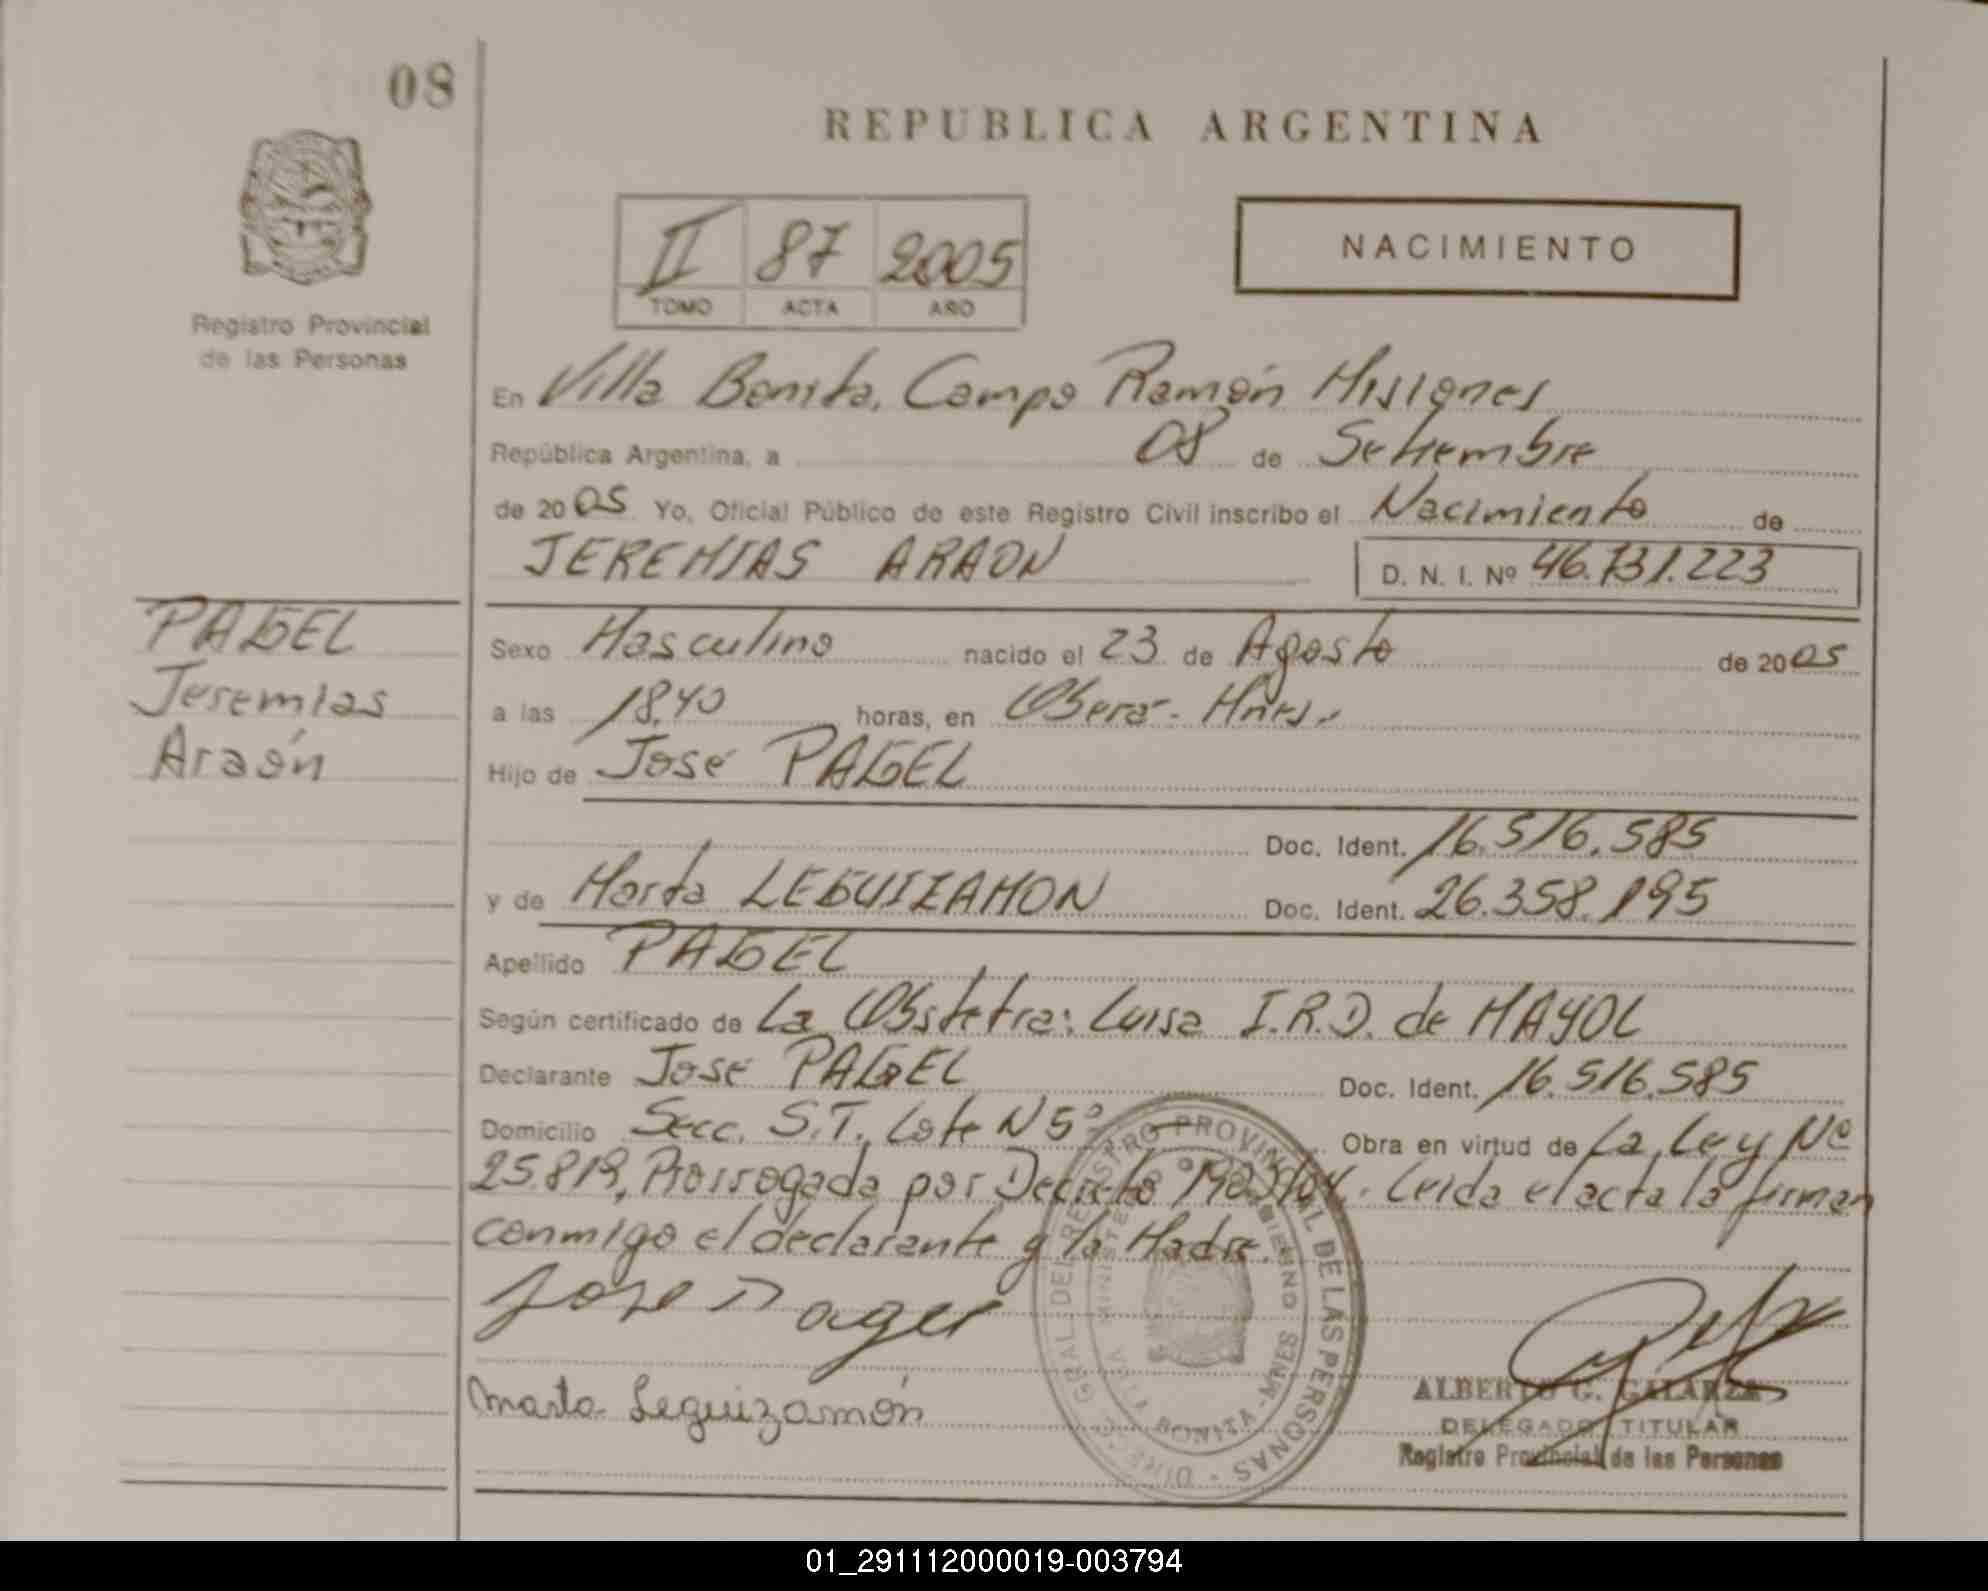 08
REPUBLICA ARGENTINA
II 87 2005
TOMO ACTA AÑO
NACIMIENTO
Registro Provincial
de las Personas
En Villa Bonita, Campo Ramón Misiones
República Argentina, a 08 de Setiembre
de 2005 Yo, Oficial Público de este Registro Civil inscribo el Nacimiento de
JEREMIAS ARAON D. N. I. Nº 46.731.223
PAGEL
Jeremias
Araón
Sexo Masculino nacido el 23 de Agosto de 2005
a las 18,40 horas, en Oberá - Mnes.
Hijo de José PAGEL
Doc. Ident. 16.516.585
y de Marta LEGUIZAMON Doc. Ident. 26.358.195
Apellido PAGEL
Según certificado de La Obstetra: Luisa I.R.D. de MAYOL
Declarante José PAGEL Doc. Ident. 16.516.585
Domicilio Secc. S.T. Lote N 5º Obra en virtud de La Ley Nº
25.819, Prorrogada por Decreto Leida el acta la firman
conmigo el declarante y la Madre.
Jose Pagel
Marta Leguizamón
DIREC. GRAL. DEL REGISTRO PROVINCIAL DE LAS PERSONAS
MINISTERIO GOBIERNO
VILLA BONITA - MNES
ALBERTO G. GALARZA
DELEGADO TITULAR
Registro Provincial de las Personas
01_291112000019-003794